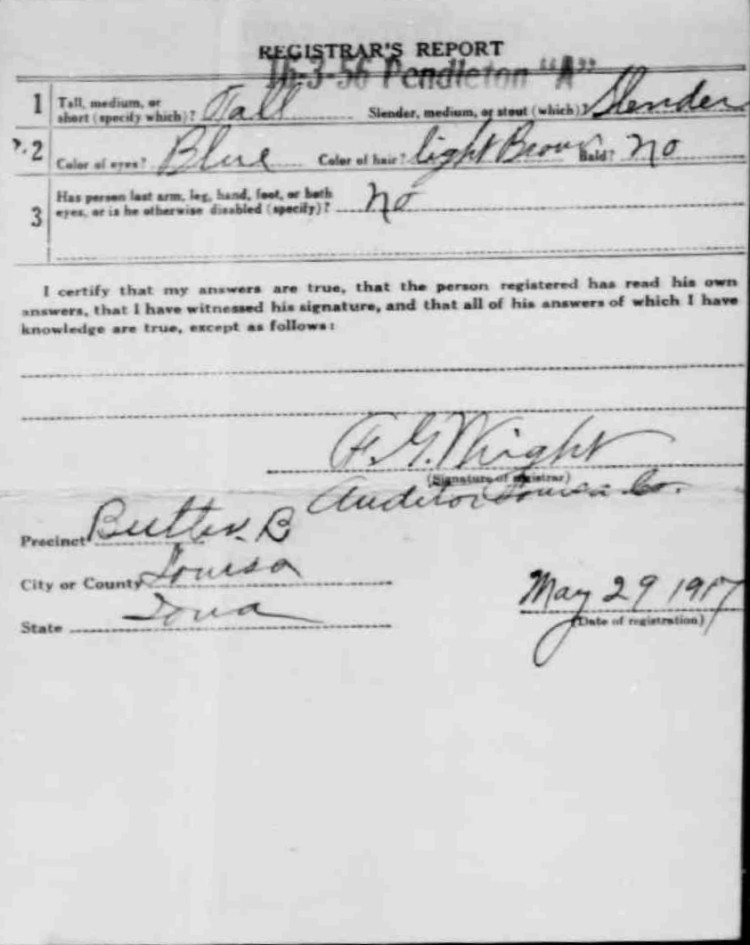 REGISTRAR'S REPORT
16-3-56 Pendleton "A"
1 Tall, medium, or short (specify which)? Tall Slender, medium, or stout (which)? Slender
?.2 Color of eyes? Blue Color of hair? light Brown Bald? no
3 Has person lost arm, leg, hand, foot, or both
eyes, or is he otherwise disabled (specify)? no
I certify that my answers are true, that the person registered has read his own
answers, that I have witnessed his signature, and that all of his answers of which I have
knowledge are true, except as follows:
F. G. Wright
(Signature of registrar)
Auditor Louisa Co.
Precinct Butler B
City or County Louisa
State Iowa
May 29 1917
(Date of registration)